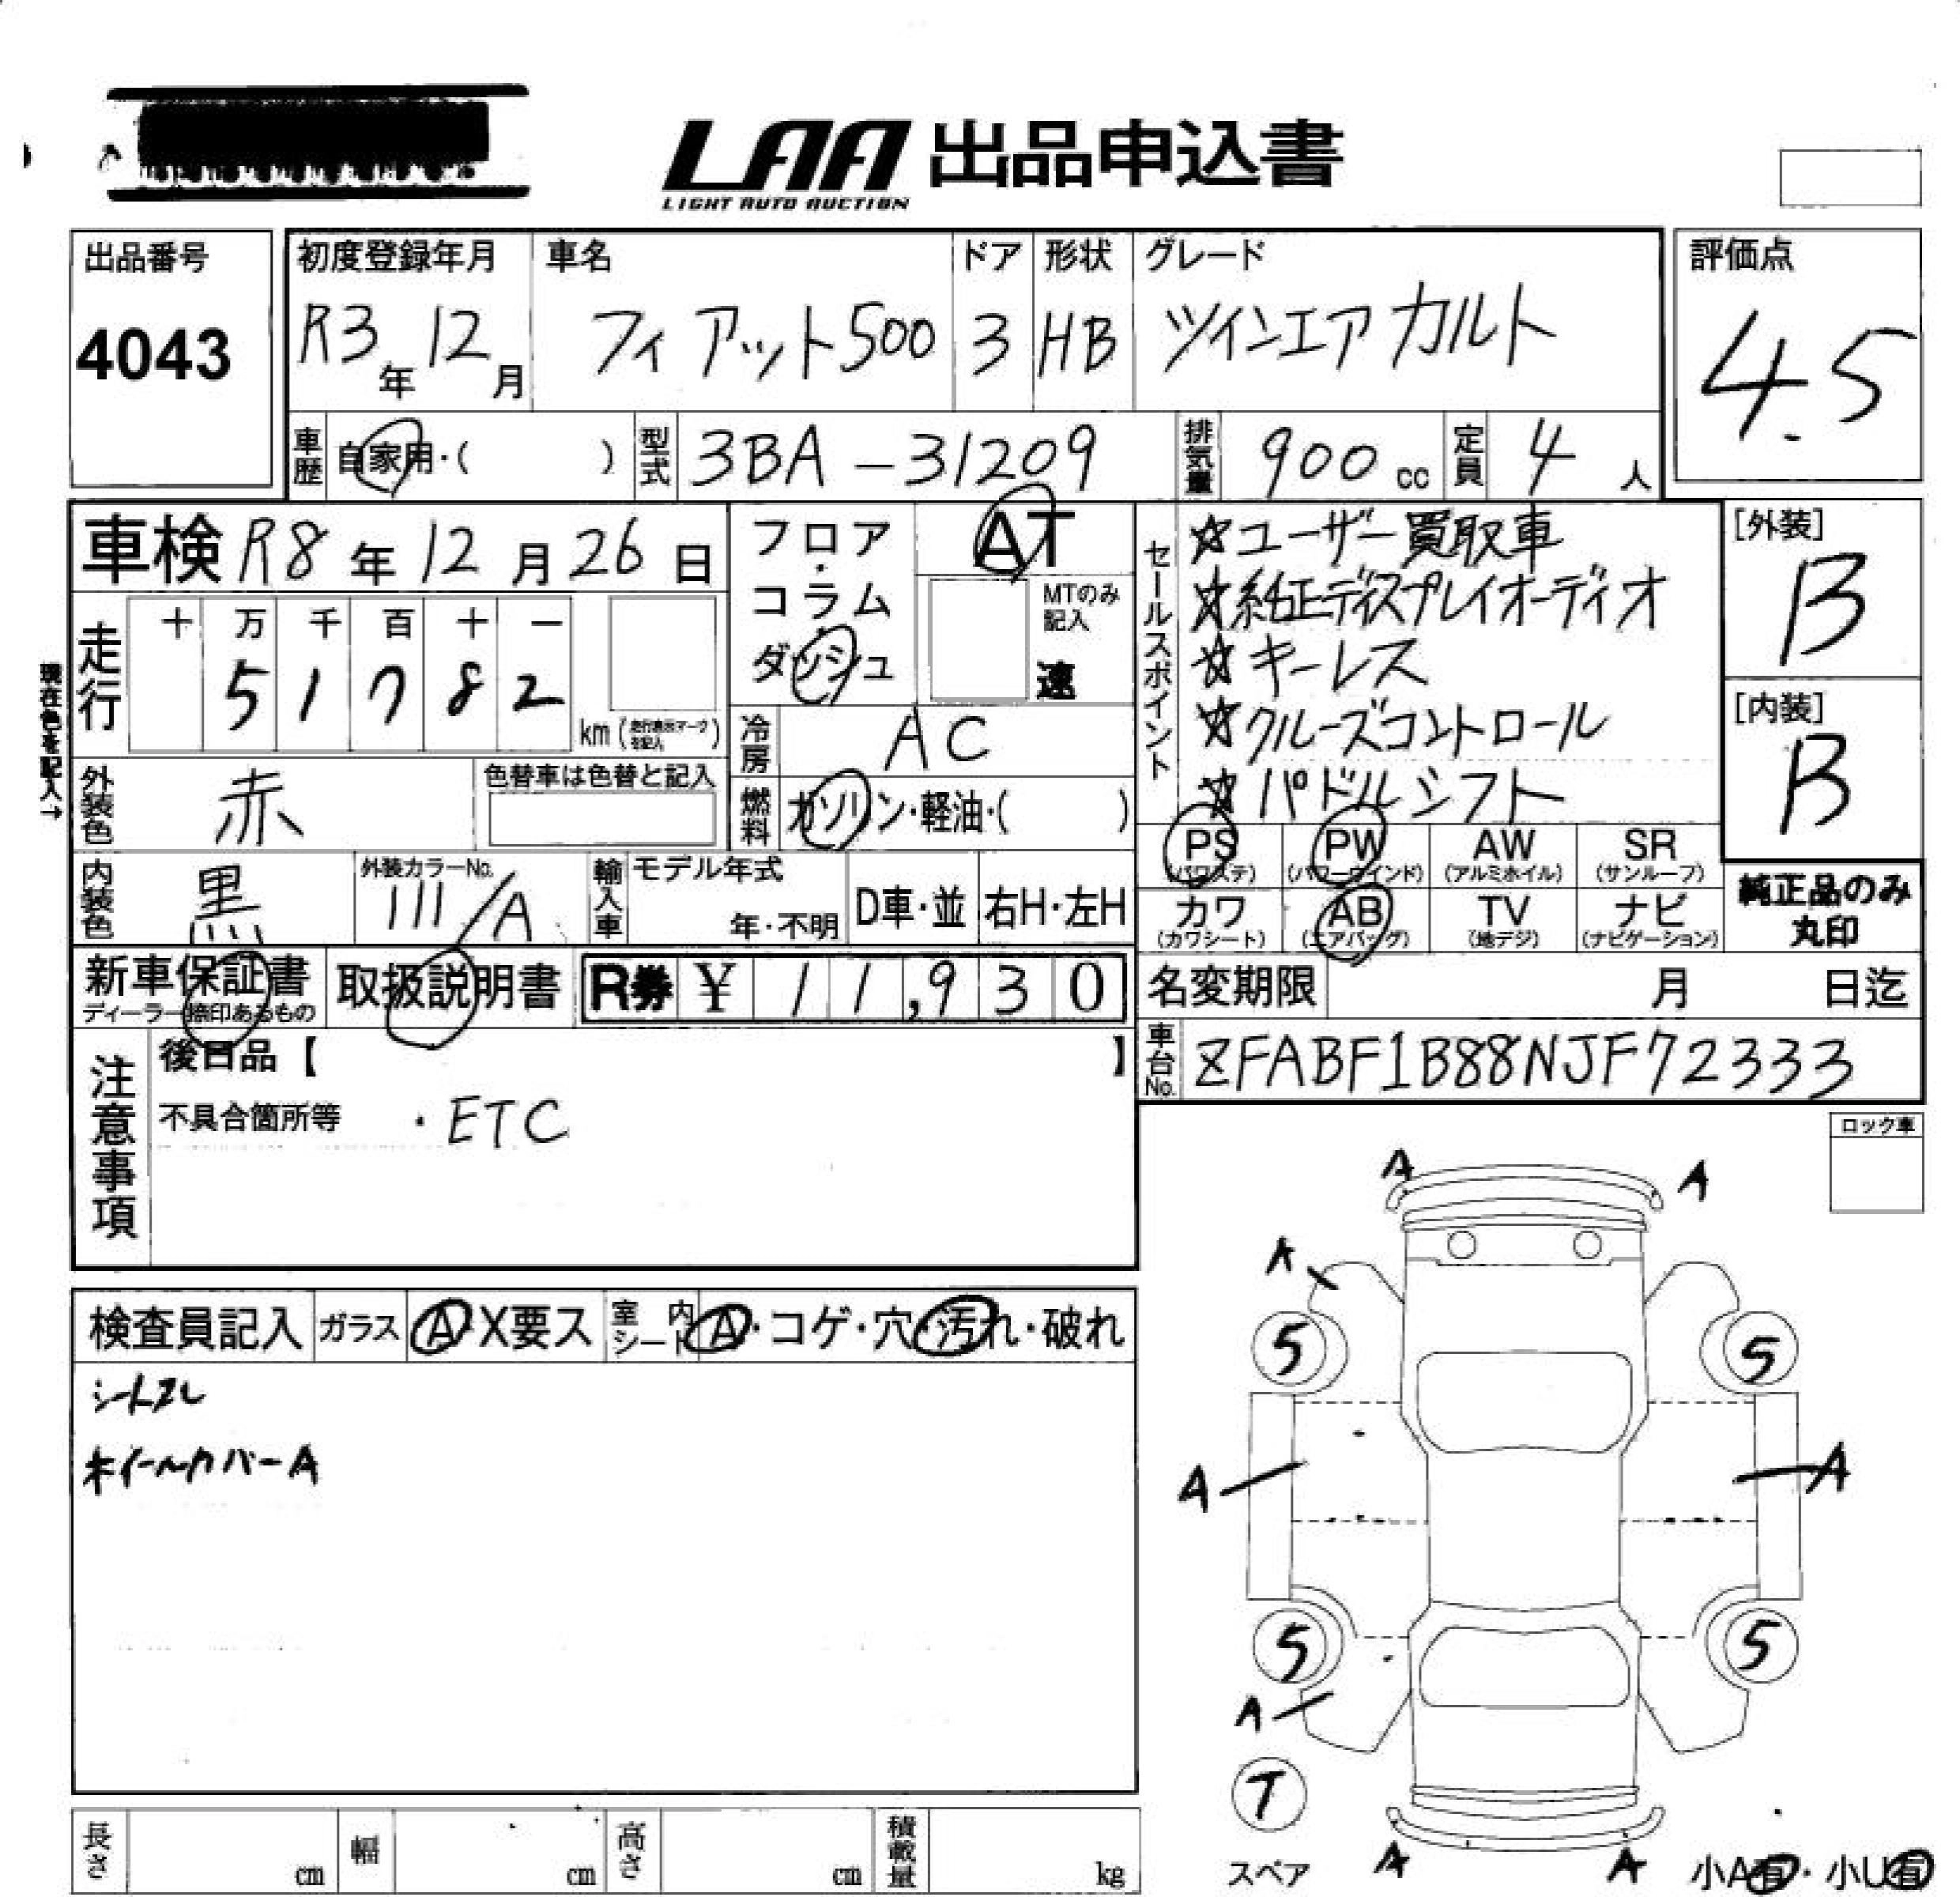 LAA 出品申込書
LIGHT AUTO AUCTION
出品番号
4043
初度登録年月
R3年12月
車名
フィアット500
ドア
3
形状
HB
グレード
ツインエア カルト
評価点
4.5
車歴 自家用・( )
型式 3BA-31209
排気量 900cc
定員 4人
車検 R8年12月26日
フロア・コラム・ダッシュ
AT
MTのみ記入
速
セールスポイント
☆ユーザー買取車
☆純正ディスプレイオーディオ
☆キーレス
☆クルーズコントロール
☆パドルシフト
[外装]
B
[内装]
B
現在色を記入→
走行 十 万 千 百 十 一
51782
km(走行表示マークを記入)
冷房 AC
燃料 ガソリン・軽油・( )
外装色 赤
色替車は色替と記入
内装色 黒
外装カラーNo.
111/A
輸入車 モデル年式
年・不明
D車・並
右H・左H
PS (パワステ)
PW (パワーウインド)
AW (アルミホイル)
SR (サンルーフ)
カワ (カワシート)
AB (エアバッグ)
TV (地デジ)
ナビ (ナビゲーション)
純正品のみ
丸印
新車保証書
ディーラー捺印あるもの
取扱説明書
R券 ¥ 11,930
名変期限 月 日迄
車台No. ZFABF1B88NJF72333
注意事項
後日品【 】
不具合箇所等 ・ETC
ロック車
検査員記入
ガラス A・X要ス
室内シート A・コゲ・穴・汚れ・破れ
シートズレ
ホイールカバーA
A
A
A
5
5
A
A
5
5
A
T
スペア
A
A
小A有・小U有
長さ cm
幅 cm
高さ cm
積載量 kg